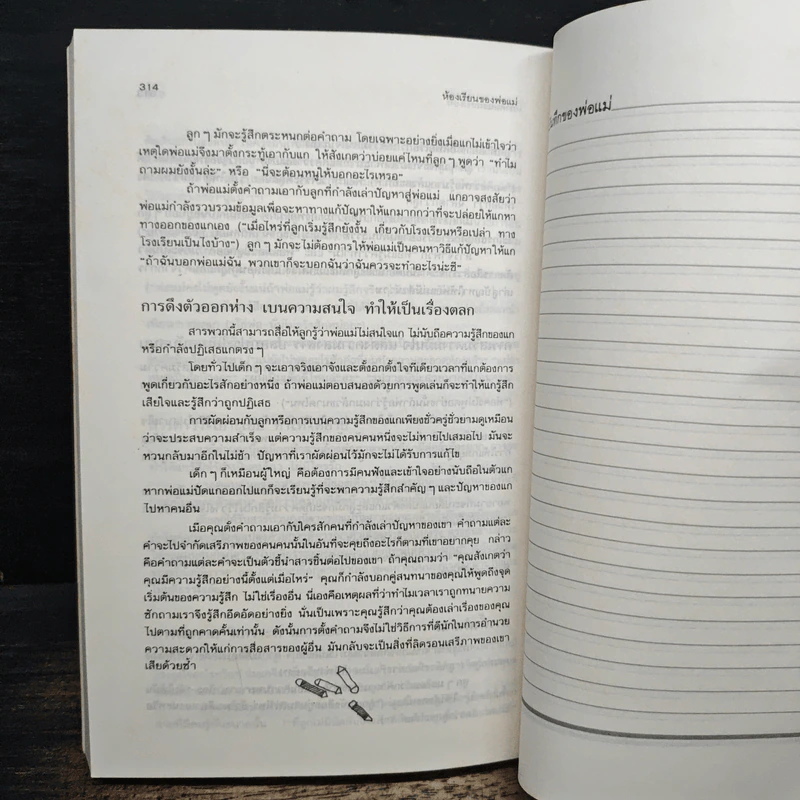 314
ห้องเรียนของพ่อแม่
ลูก ๆ มักจะรู้สึกตระหนกต่อคำถาม โดยเฉพาะอย่างยิ่งเมื่อแกไม่เข้าใจว่า
เหตุใดพ่อแม่จึงมาตั้งกระทู้เอากับแก ให้สังเกตว่าบ่อยแค่ไหนที่ลูก ๆ พูดว่า "ทำไม
ถามผมยังงั้นล่ะ" หรือ "นี่จะต้อนหนูให้บอกอะไรเหรอ"
ถ้าพ่อแม่ตั้งคำถามเอากับลูกที่กำลังเล่าปัญหาสู่พ่อแม่ แกอาจสงสัยว่า
พ่อแม่กำลังรวบรวมข้อมูลเพื่อจะหาทางแก้ปัญหาให้แกมากกว่าที่จะปล่อยให้แกหา
ทางออกของแกเอง ("เมื่อไหร่ที่ลูกเริ่มรู้สึกยังงั้น เกี่ยวกับโรงเรียนหรือเปล่า ทาง
โรงเรียนเป็นไงบ้าง") ลูก ๆ มักจะไม่ต้องการให้พ่อแม่เป็นคนหาวิธีแก้ปัญหาให้แก
"ถ้าฉันบอกพ่อแม่ฉัน พวกเขาก็จะบอกฉันว่าฉันควรจะทำอะไรน่ะซี"
การดึงตัวออกห่าง เบนความสนใจ ทำให้เป็นเรื่องตลก
สารพวกนี้สามารถสื่อให้ลูกรู้ว่าพ่อแม่ไม่สนใจแก ไม่นับถือความรู้สึกของแก
หรือกำลังปฏิเสธแกตรง ๆ
โดยทั่วไปเด็ก ๆ จะเอาจริงเอาจังและตั้งอกตั้งใจทีเดียวเวลาที่แกต้องการ
พูดเกี่ยวกับอะไรสักอย่างหนึ่ง ถ้าพ่อแม่ตอบสนองด้วยการพูดเล่นก็จะทำให้แกรู้สึก
เสียใจและรู้สึกว่าถูกปฏิเสธ
การผัดผ่อนกับลูกหรือการเบนความรู้สึกของแกเพียงชั่วครู่ชั่วยามดูเหมือน
ว่าจะประสบความสำเร็จ แต่ความรู้สึกของคนคนหนึ่งจะไม่หายไปเสมอไป มันจะ
หวนกลับมาอีกในไม่ช้า ปัญหาที่เราผัดผ่อนไว้มักจะไม่ได้รับการแก้ไข
เด็ก ๆ ก็เหมือนผู้ใหญ่ คือต้องการมีคนฟังและเข้าใจอย่างนับถือในตัวแก
หากพ่อแม่ปัดแกออกไปแกก็จะเรียนรู้ที่จะพาความรู้สึกสำคัญ ๆ และปัญหาของแก
ไปหาคนอื่น
เมื่อคุณตั้งคำถามเอากับใครสักคนที่กำลังเล่าปัญหาของเขา คำถามแต่ละ
คำจะไปจำกัดเสรีภาพของคนคนนั้นในอันที่จะคุยถึงอะไรก็ตามที่เขาอยากคุย กล่าว
คือคำถามแต่ละคำจะเป็นตัวชี้นำสารชิ้นต่อไปของเขา ถ้าคุณถามว่า "คุณสังเกตว่า
คุณมีความรู้สึกอย่างนี้ตั้งแต่เมื่อไหร่" คุณก็กำลังบอกคู่สนทนาของคุณให้พูดถึงจุด
เริ่มต้นของความรู้สึก ไม่ใช่เรื่องอื่น นี่เองคือเหตุผลที่ว่าทำไมเวลาเราถูกทนายความ
ซักถามเราจึงรู้สึกอึดอัดอย่างยิ่ง นั่นเป็นเพราะคุณรู้สึกว่าคุณต้องเล่าเรื่องของคุณ
ไปตามที่ถูกคาดคั้นเท่านั้น ดังนั้นการตั้งคำถามจึงไม่ใช่วิธีการที่ดีนักในการอำนวย
ความสะดวกให้แก่การสื่อสารของผู้อื่น มันกลับจะเป็นสิ่งที่ลิดรอนเสรีภาพของเขา
เสียด้วยซ้ำ
ของพ่อแม่